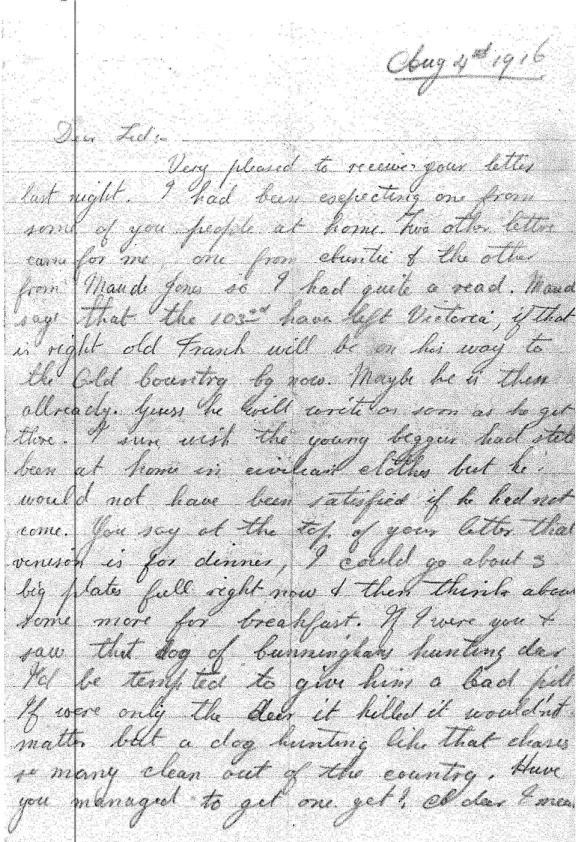 Aug 4th 1916
Dear Ted:-
Very pleased to receive your letter
last night. I had been expecting one from
some of you people at home. Two other letters
came for me, one from Auntie & the other
from Maude Jones so I had quite a read. Maud
says that the 103rd have left Victoria, if that
is right old Frank will be on his way to
the Old Country by now. Maybe he is there
allready. Guess he will write as soon as he get
there. I sure wish the young begger had still
been at home in civilian clothes but he
would not have been satisfied if he had not
come. You say at the top of your letter that
venison is for dinner, I could go about 3
big plates full right now & then think about
some more for breakfast. If I were you &
saw that dog of Cunninghams hunting dear
I'd be tempted to give him a bad pill
If were only the deer it killed it wouldn't
matter but a dog hunting like that chases
so many clean out of the country. Have
you managed to get one yet? A dear I mean